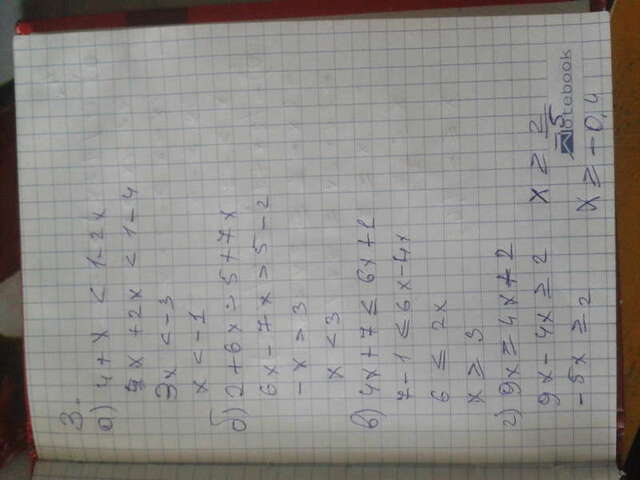 3.
а) 4 + x < 1 - 2x
x + 2x < 1 - 4
3x < -3
x < -1
б) 2 + 6x > 5 + 7x
6x - 7x > 5 - 2
-x > 3
x < 3
в) 4x + 7 ≤ 6x + 1
7 - 1 ≤ 6x - 4x
6 ≤ 2x
x ≥ 3
г) 9x ≥ 4x + 2
9x - 4x ≥ 2
-5x ≥ 2
x ≥ 2/-5
x ≥ -0,4
notebook